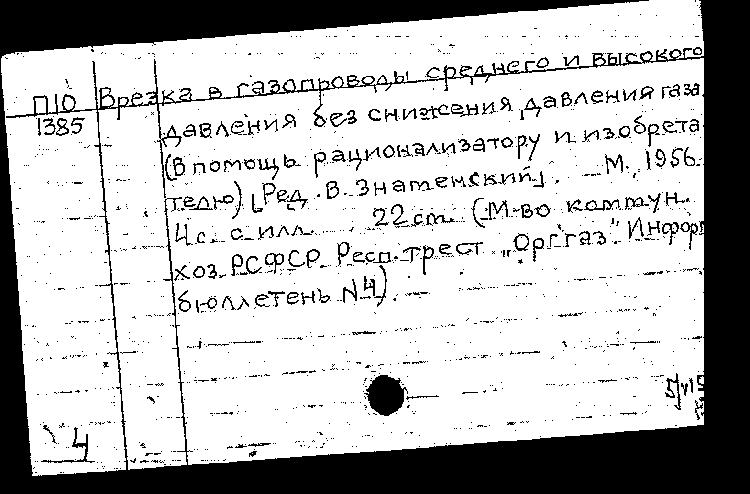 П10 Врезка в газопроводы среднего и высокого
1385 давления без снижения давления газа.
(В помощь рационализатору и изобрета
телю) [Ред. В. Знаменский]. – М., 1956.
4 с. с илл. 22 см. (М-во коммун.
хоз. РСФСР. Респ. трест „Орггаз". Информ
бюллетень N4). –
4